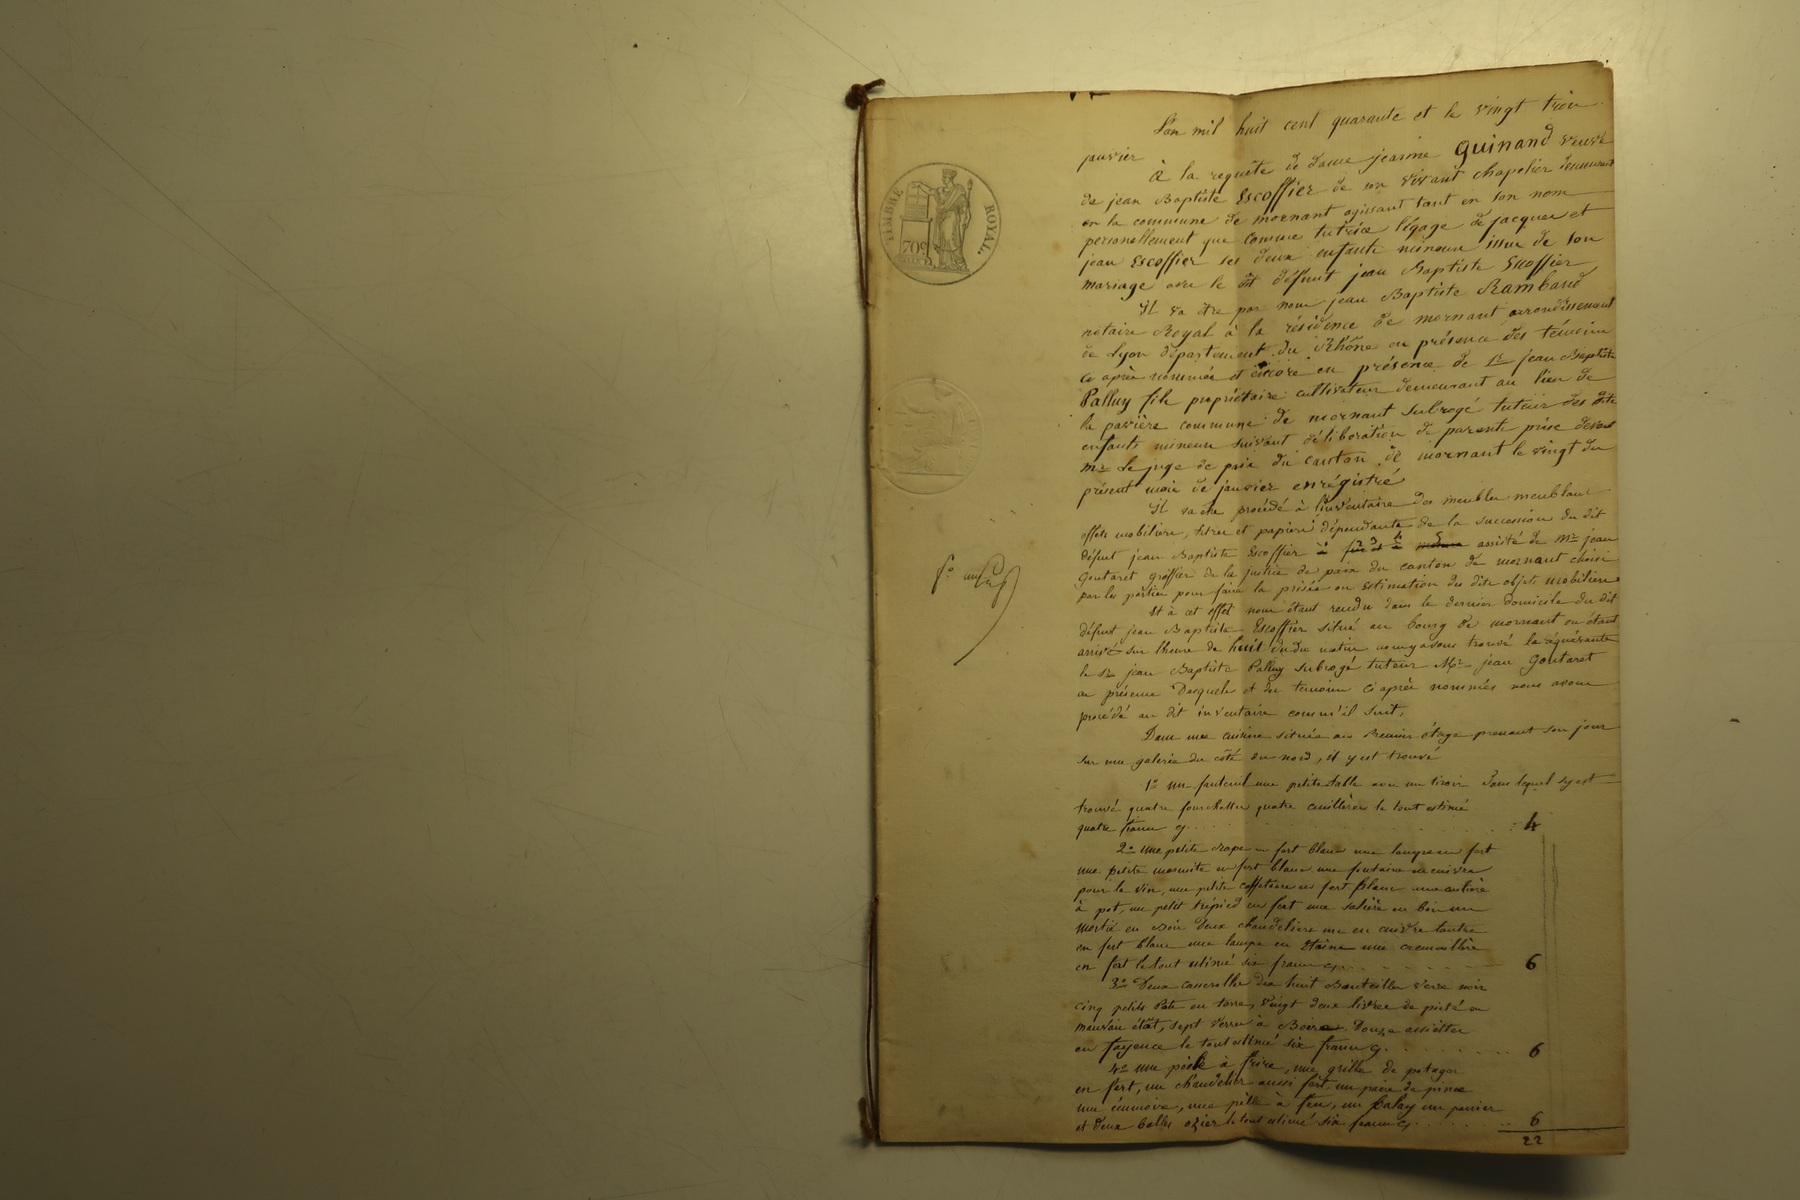 TIMBRE ROYAL
70c
L'an mil huit cent quarante et le vingt trois
janvier
À la requête de dame jeanne Guinand veuve
de jean Baptiste Escoffier de son vivant chapelier demeurant
en la commune de mornant agissant tant en son nom
personellement que comme tutrice légage de jacques et
jean Escoffier ses deux enfants mineurs issus de son
mariage avec le dit défunt jean Baptiste Escoffier
Il va être par nous jean Baptiste Rambaud
notaire Royal à la résidence de mornant arrondissement
de Lyon département du Rhône en présence des témoins
ci après nommés et encore en présence de Sr jean Baptiste
Palluy fils propriétaire cultivateur demeurant au lieu de
la pavière commune de mornant subrogé tuteur des dits
enfants mineurs suivant délibération de parents prise devant
Mr Le juge de paix du canton de mornant le vingt du
présent mois de janvier enrégistré
Il va être procédé à l'inventaire des meubles meublans
effets mobiliers, titres et papiers dépendants de la succession du dit
défunt jean Baptiste Escoffier assisté de Mr jean
Goutaret greffier de la justice de paix du canton de mornant choisi
par les parties pour faire la prisée ou estimation des dits objets mobiliers
Et à cet effet nous étant rendu dans le dernier domicile du dit
défunt jean Baptiste Escoffier situé au bourg de mornant ou étant
arrivé sur l'heure de huit du matin nous y avons trouvé la réquérante
le Sr jean Baptiste Palluy subrogé tuteur Mr jean Goutaret
en présence desquels et des temoins ci après nommés nous avons
procédé au dit inventaire comm'il suit,
Dans une cuisine située au premier étage prenant son jour
sur une galerie du côté du nord, il y est trouvé
1º un fauteuil une petite table avec un tiroir dans lequel s'y est
trouvé quatre fourchettes quatre cuillères le tout estimé
quatre francs cy 4
2º une petite en fert blanc une fert
une petite marmite en fert blanc une fontaine en cuivre
pour le vin, une petite caffetière en fert blanc une
à pot, un petit trépied en fert une salière en bois un
mortié en deux chandeliers un en cuivre l'autre
en fert blanc une lampe en étaine une cremaillère
en fert le tout estimé six francs cy 6
3º Deux casserolles dix huit Bouteilles verre noir
cinq petits Pots en terre, vingt deux livres de en
mauvais étât, sept verres à Boire Douze assiettes
en fayence le tout estimé six francs cy 6
4º une poële à frire, une grille de potager
en fert, un chandelier aussi fert, un paire de pince
une écumoire, une pelle à feu, un Balay un panier
et deux balles ozier le tout estimé six francs cy 6
22